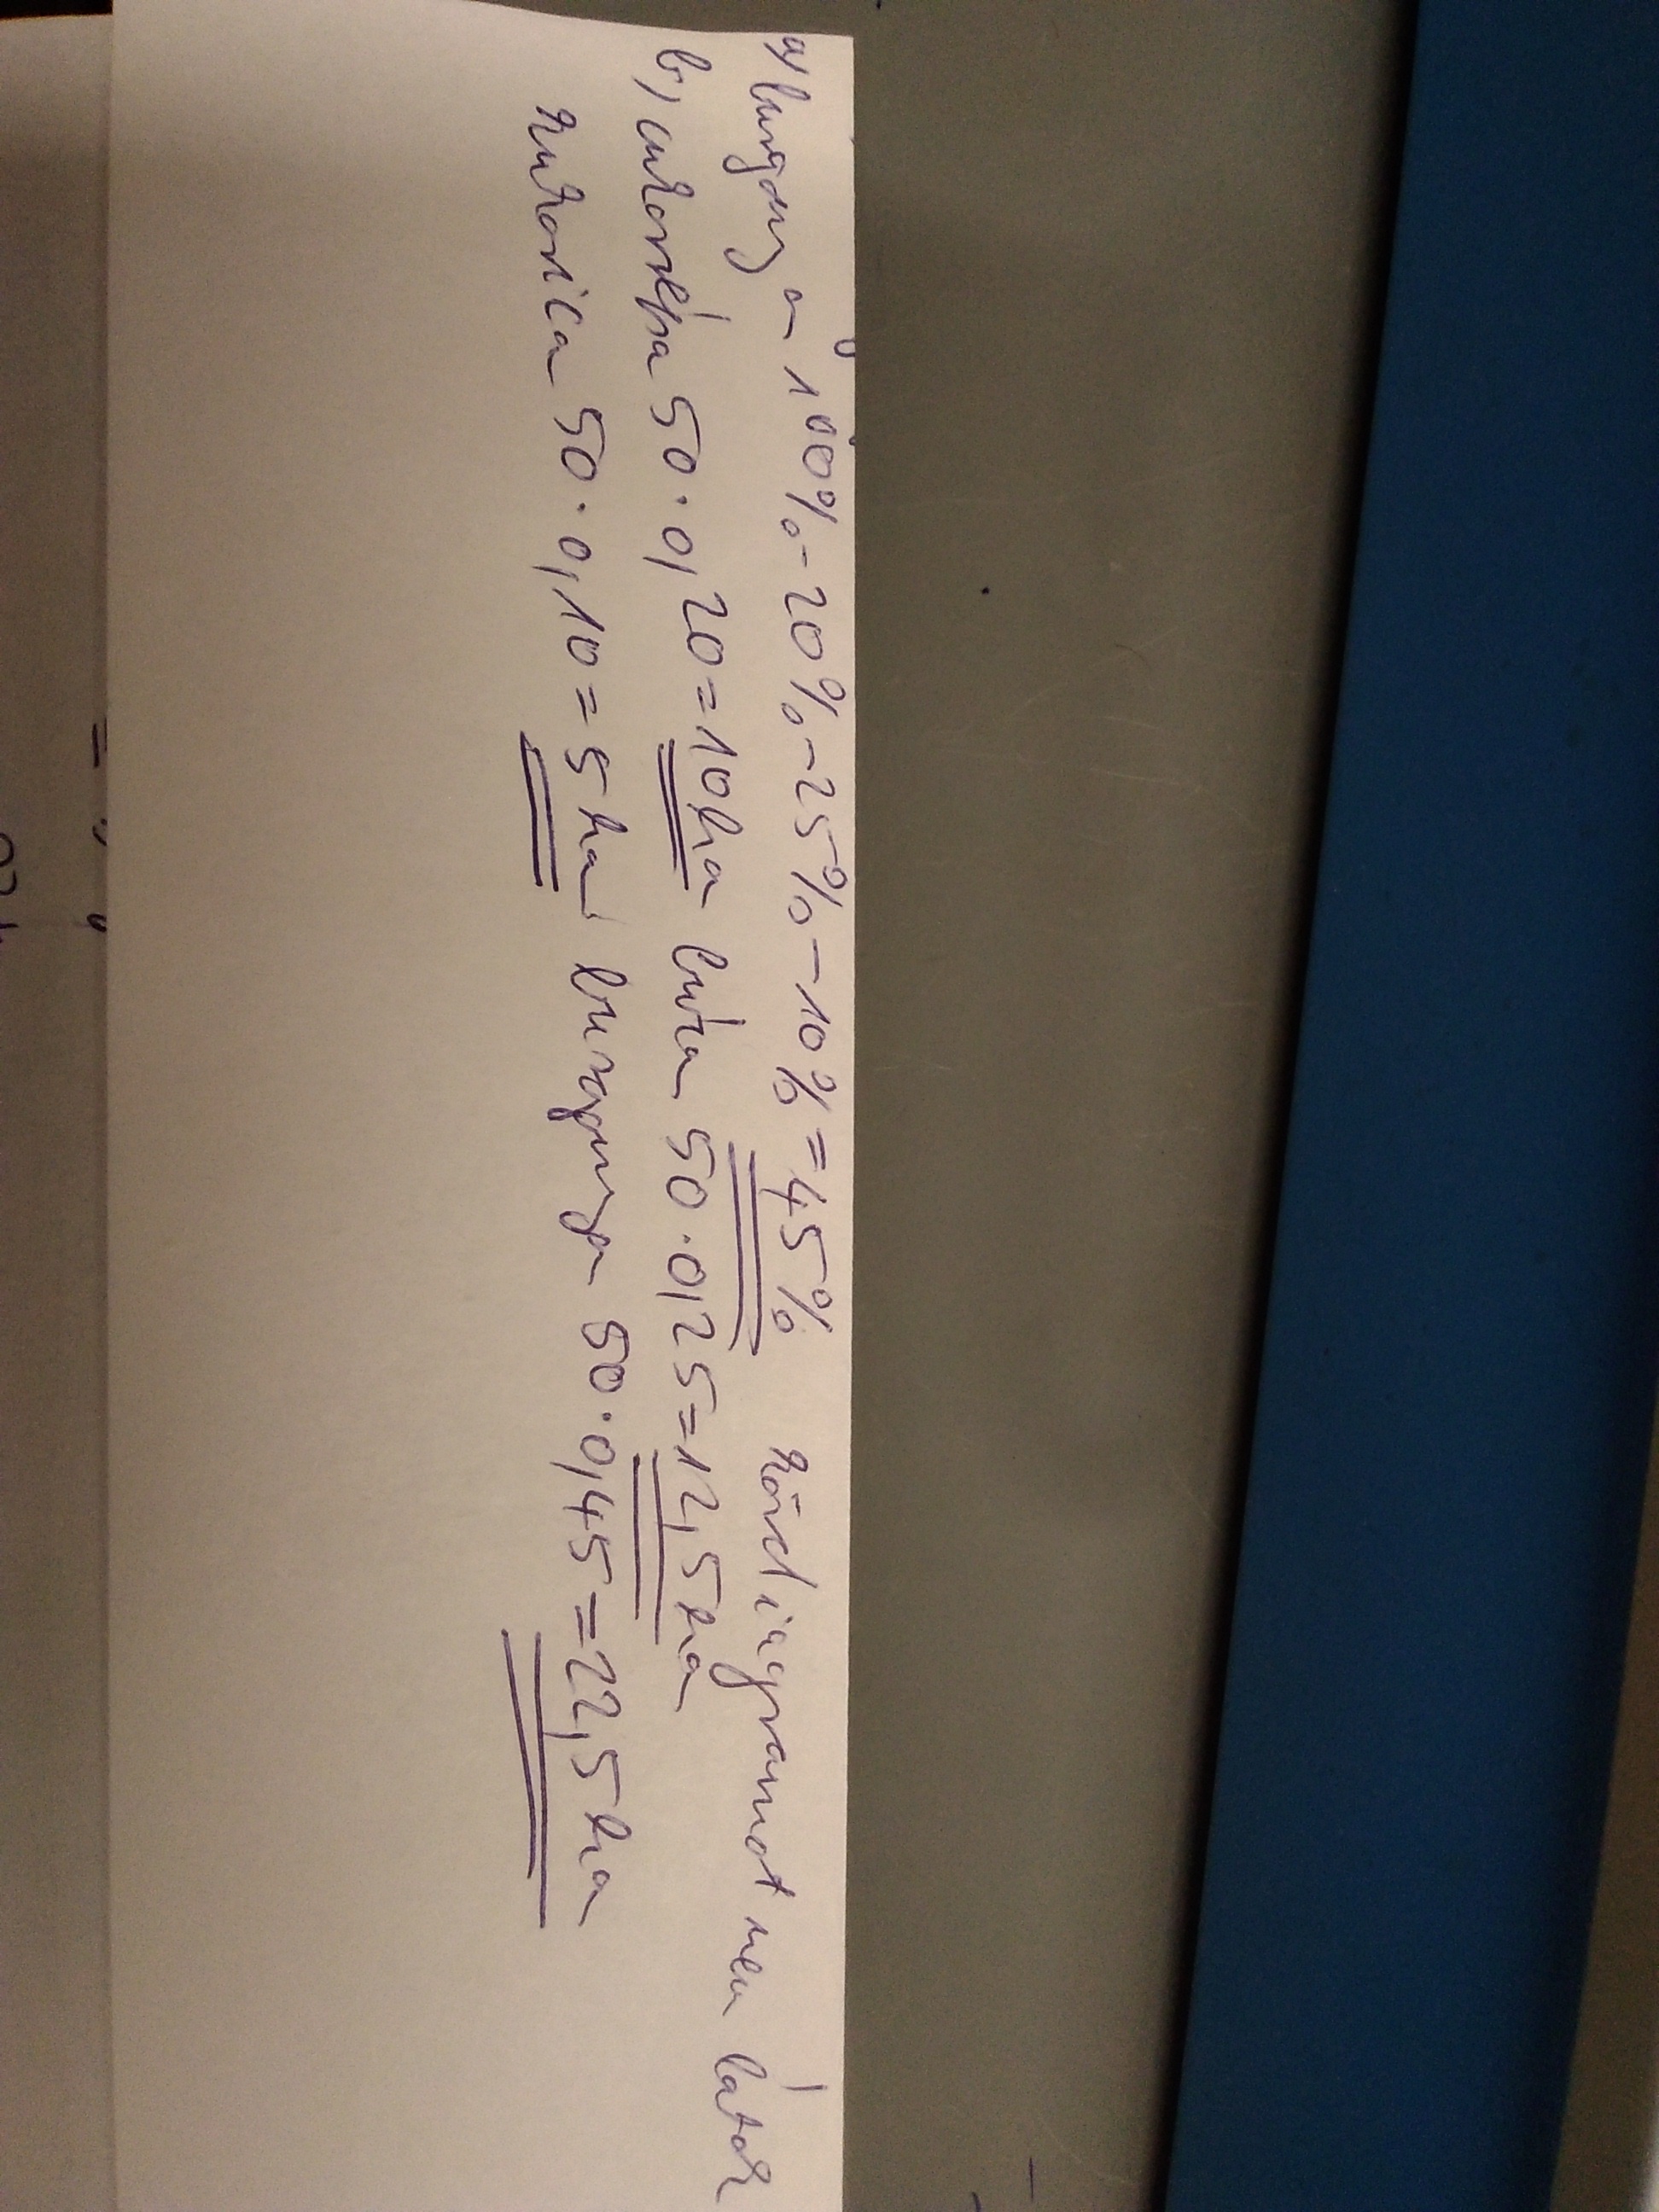 a, burgony a 100%-20%-25%-10%=45% kördiagramot nem látok
b, cukorrépa 50·0,20=10ha búza 50·0,25=12,5ha
kukorica 50·0,10=5ha burgonya 50·0,45=22,5ha